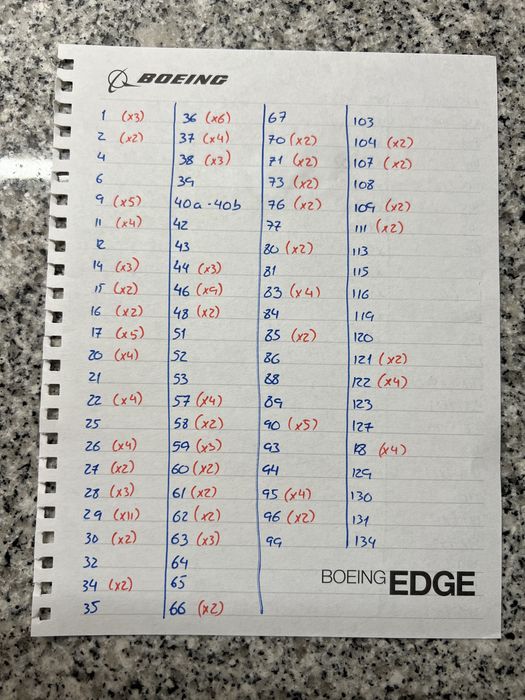 BOEING
1 (x3)
2 (x2)
4
6
9 (x5)
11 (x4)
12
14 (x3)
15 (x2)
16 (x2)
17 (x5)
20 (x4)
21
22 (x4)
25
26 (x4)
27 (x2)
28 (x3)
29 (x11)
30 (x2)
32
34 (x2)
35
36 (x6)
37 (x4)
38 (x3)
39
40a - 40b
42
43
44 (x3)
46 (x9)
48 (x2)
51
52
53
57 (x4)
58 (x2)
59 (x3)
60 (x2)
61 (x2)
62 (x2)
63 (x3)
64
65
66 (x2)
67
70 (x2)
71 (x2)
73 (x2)
76 (x2)
77
80 (x2)
81
83 (x4)
84
85 (x2)
86
88
89
90 (x5)
93
94
95 (x4)
96 (x2)
99
103
104 (x2)
107 (x2)
108
109 (x2)
111 (x2)
113
115
116
119
120
121 (x2)
122 (x4)
123
127
(x4)
129
130
131
134
BOEING EDGE